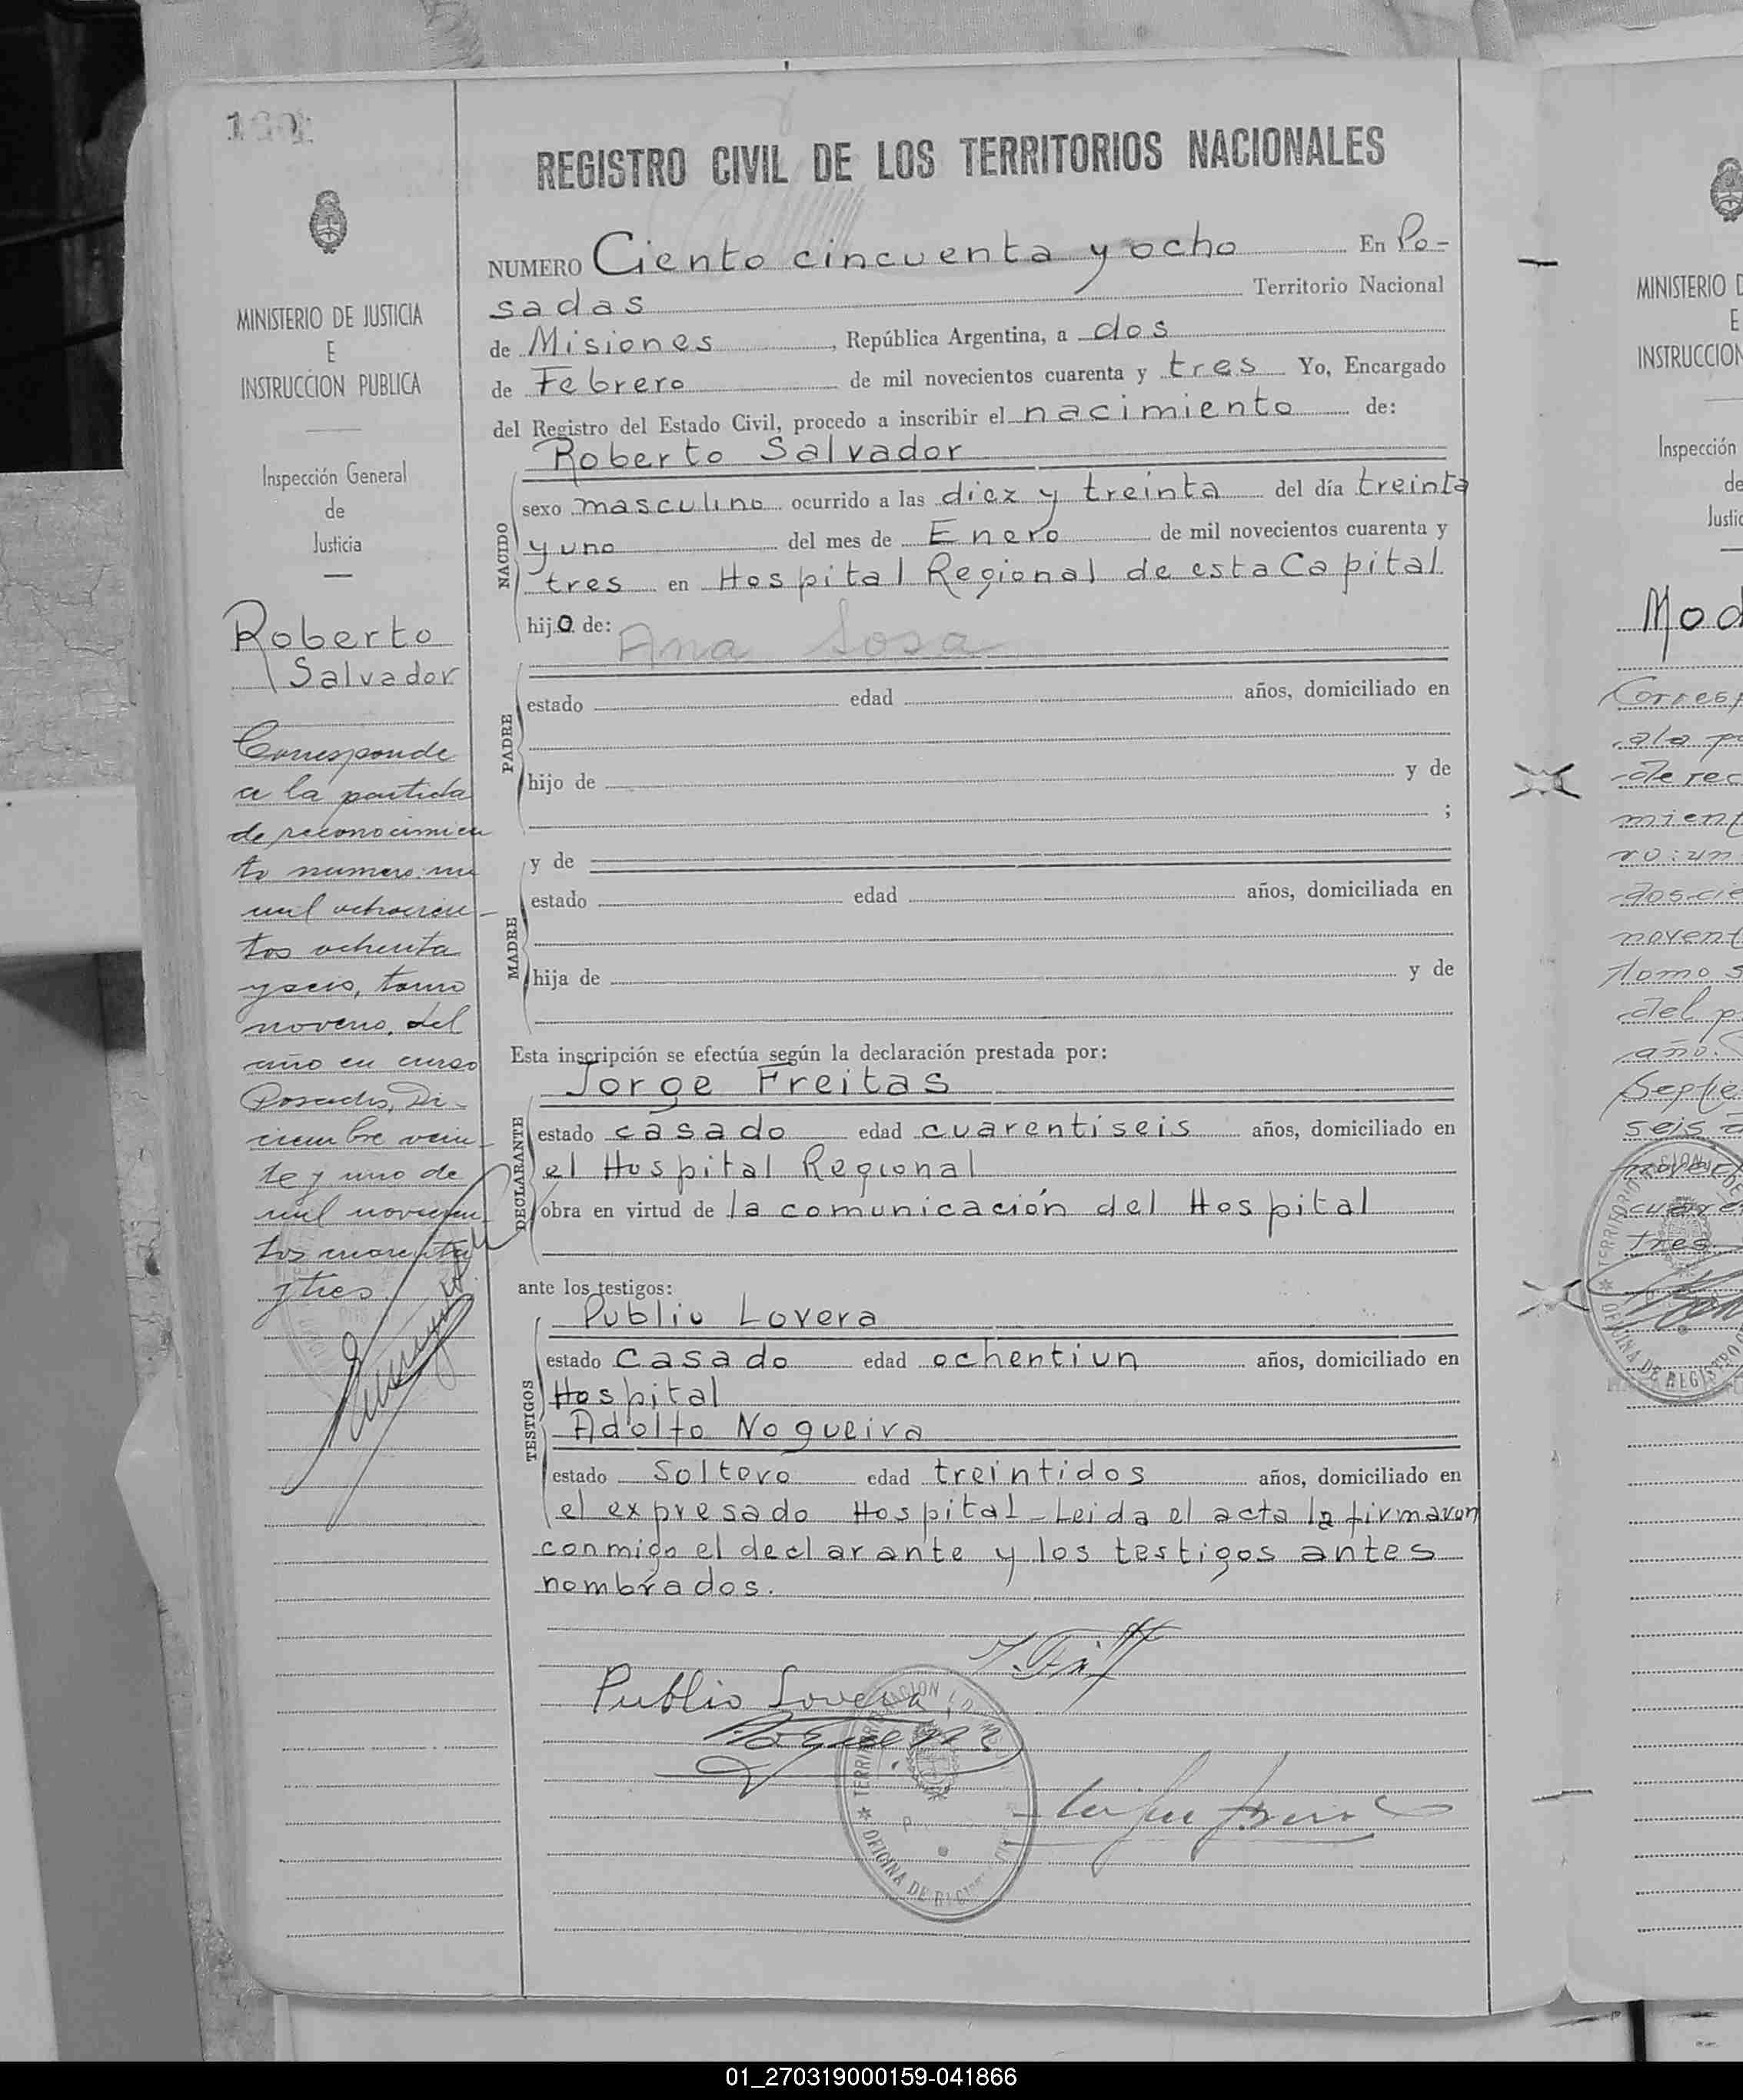 REGISTRO CIVIL DE LOS TERRITORIOS NACIONALES
NUMERO Ciento cincuenta y ocho En Po-
sadas Territorio Nacional
de Misiones, República Argentina, a dos
de Febrero de mil novecientos cuarenta y tres Yo, Encargado
del Registro del Estado Civil, procedo a inscribir el nacimiento de:
Roberto Salvador
NACIDO
sexo masculino ocurrido a las diez y treinta del día treinta
y uno del mes de Enero de mil novecientos cuarenta y
tres en Hospital Regional de esta Capital
hijo de:
Ana Sosa
PADRE
estado edad años, domiciliado en
hijo de y de
;
MADRE
y de
estado edad años, domiciliada en
hija de y de
Esta inscripción se efectúa según la declaración prestada por:
Jorge Freitas
DECLARANTE
estado casado edad cuarentiseis años, domiciliado en
el Hospital Regional
obra en virtud de la comunicación del Hospital
ante los testigos:
Publio Lovera
TESTIGOS
estado casado edad ochentiun años, domiciliado en
Hospital
Adolfo Nogueira
estado soltero edad treintidos años, domiciliado en
el expresado Hospital - Leida el acta la firmaron
conmigo el declarante y los testigos antes
nombrados.
Publio Lovera
OFICINA DE
MINISTERIO DE JUSTICIA
E
INSTRUCCION PUBLICA
Inspección General
de
Justicia
Roberto
Salvador
Corresponde
a la partida
de reconocimien
to numero: un
mil ochocien-
tos ochenta
y seis, tomo
noveno, del
año en curso
Posadas, Di-
ciembre vein-
te y uno de
mil novecien
tos cuarenta
y tres.
MINISTERIO D
E
INSTRUCCION
Inspección
de
Justic
Mod
Corresp
a la p
de rec
mient
ro: un
doscie
novent
tomo s
del p
año.
Septie
seis d
novec
cuare
tres
OFICINA DE REGISTRO
01_270319000159-041866